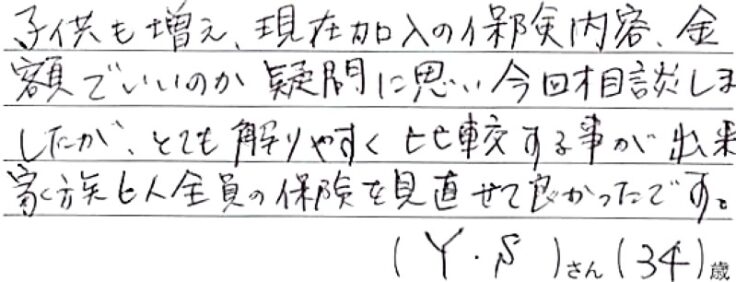 子供も増え、現在加入の保険内容、金
額でいいのか疑問に思い今回相談しま
したが、とても解りやすく比較する事が出来
家族6人全員の保険を見直せて良かったです。
(Y・S)さん(34)歳